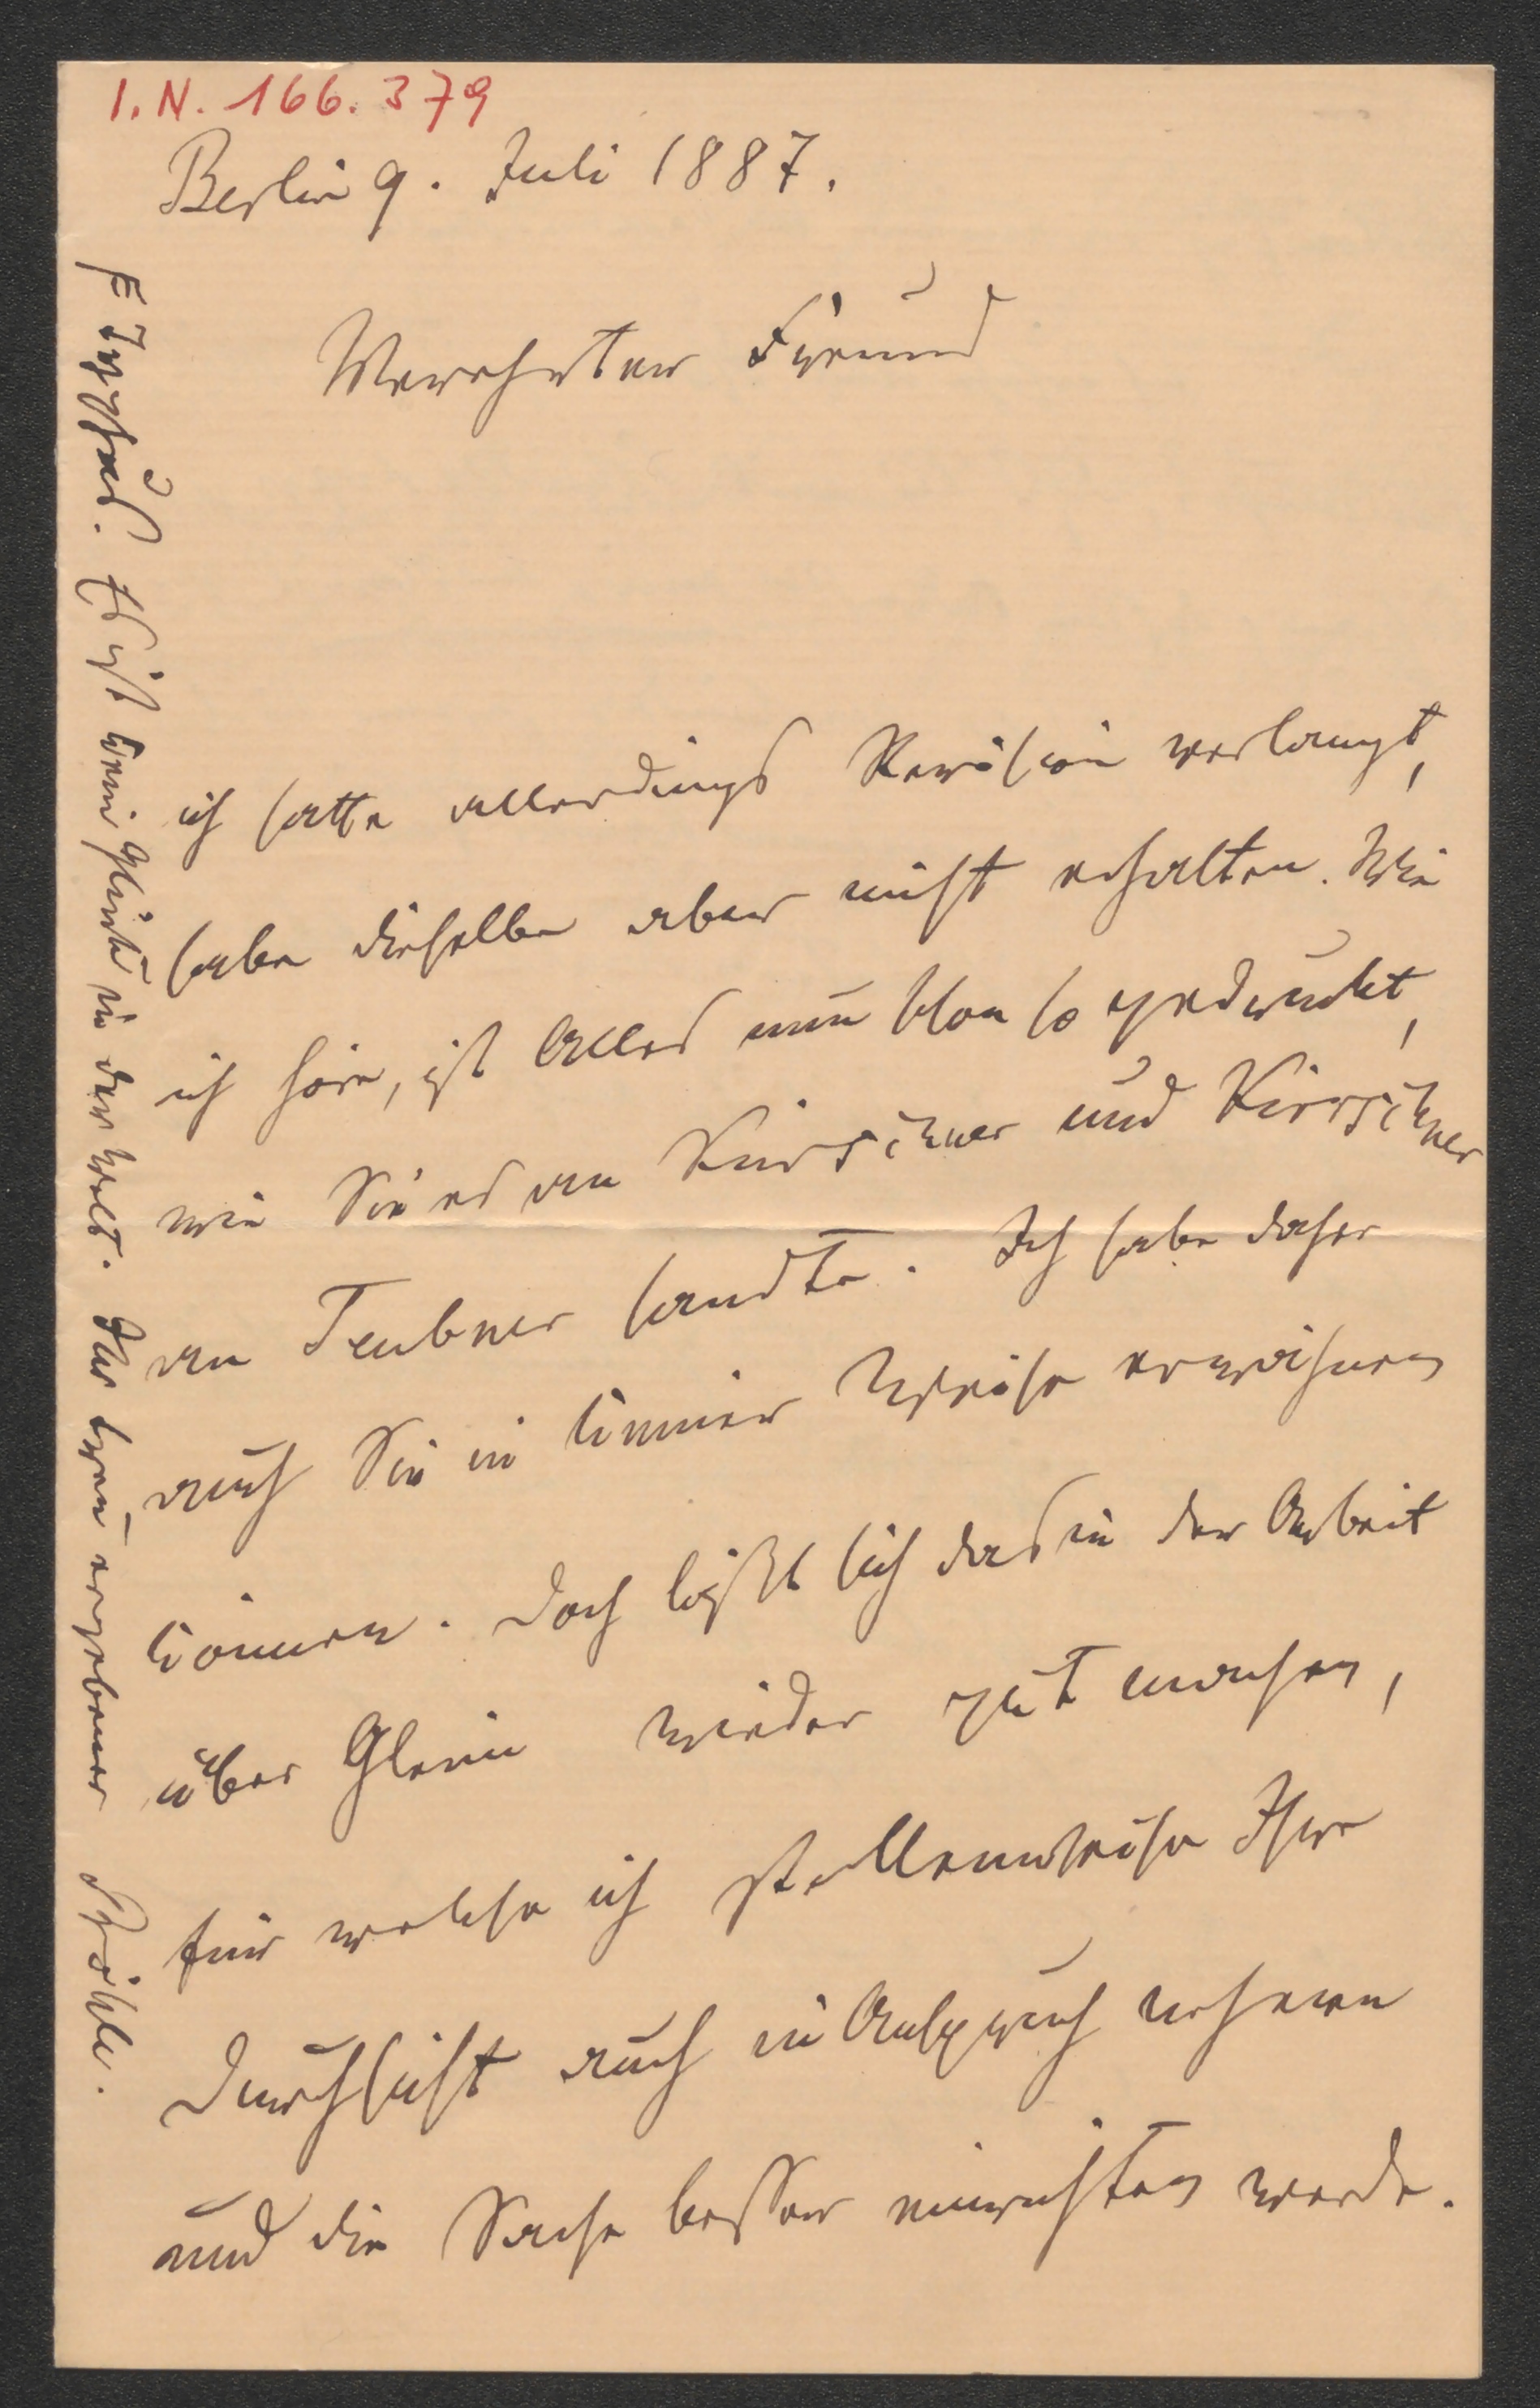 I.N. 166.379
Berlin 9. Juli 1887.
Verehrter Freund
ich hatte allerdings Revision verlangt,
habe dieselbe aber nicht erhalten. Wie
ich höre, ist Alles nun so gedruckt,
wie Sie es an Kürschner und Kürschner
an Teubner sandte. Ich habe daher
auch Sie in keiner Weise erwähnen
können. Doch läßt sich das in der Arbeit
über Gleim wieder gut machen,
für welche ich stellenweise Ihre
Durchsicht auch in Anspruch nehmen
und die Sache besser einrichten werde.
Es ist kein Glück in der Welt. Ihr treu ergebener Pröhle.